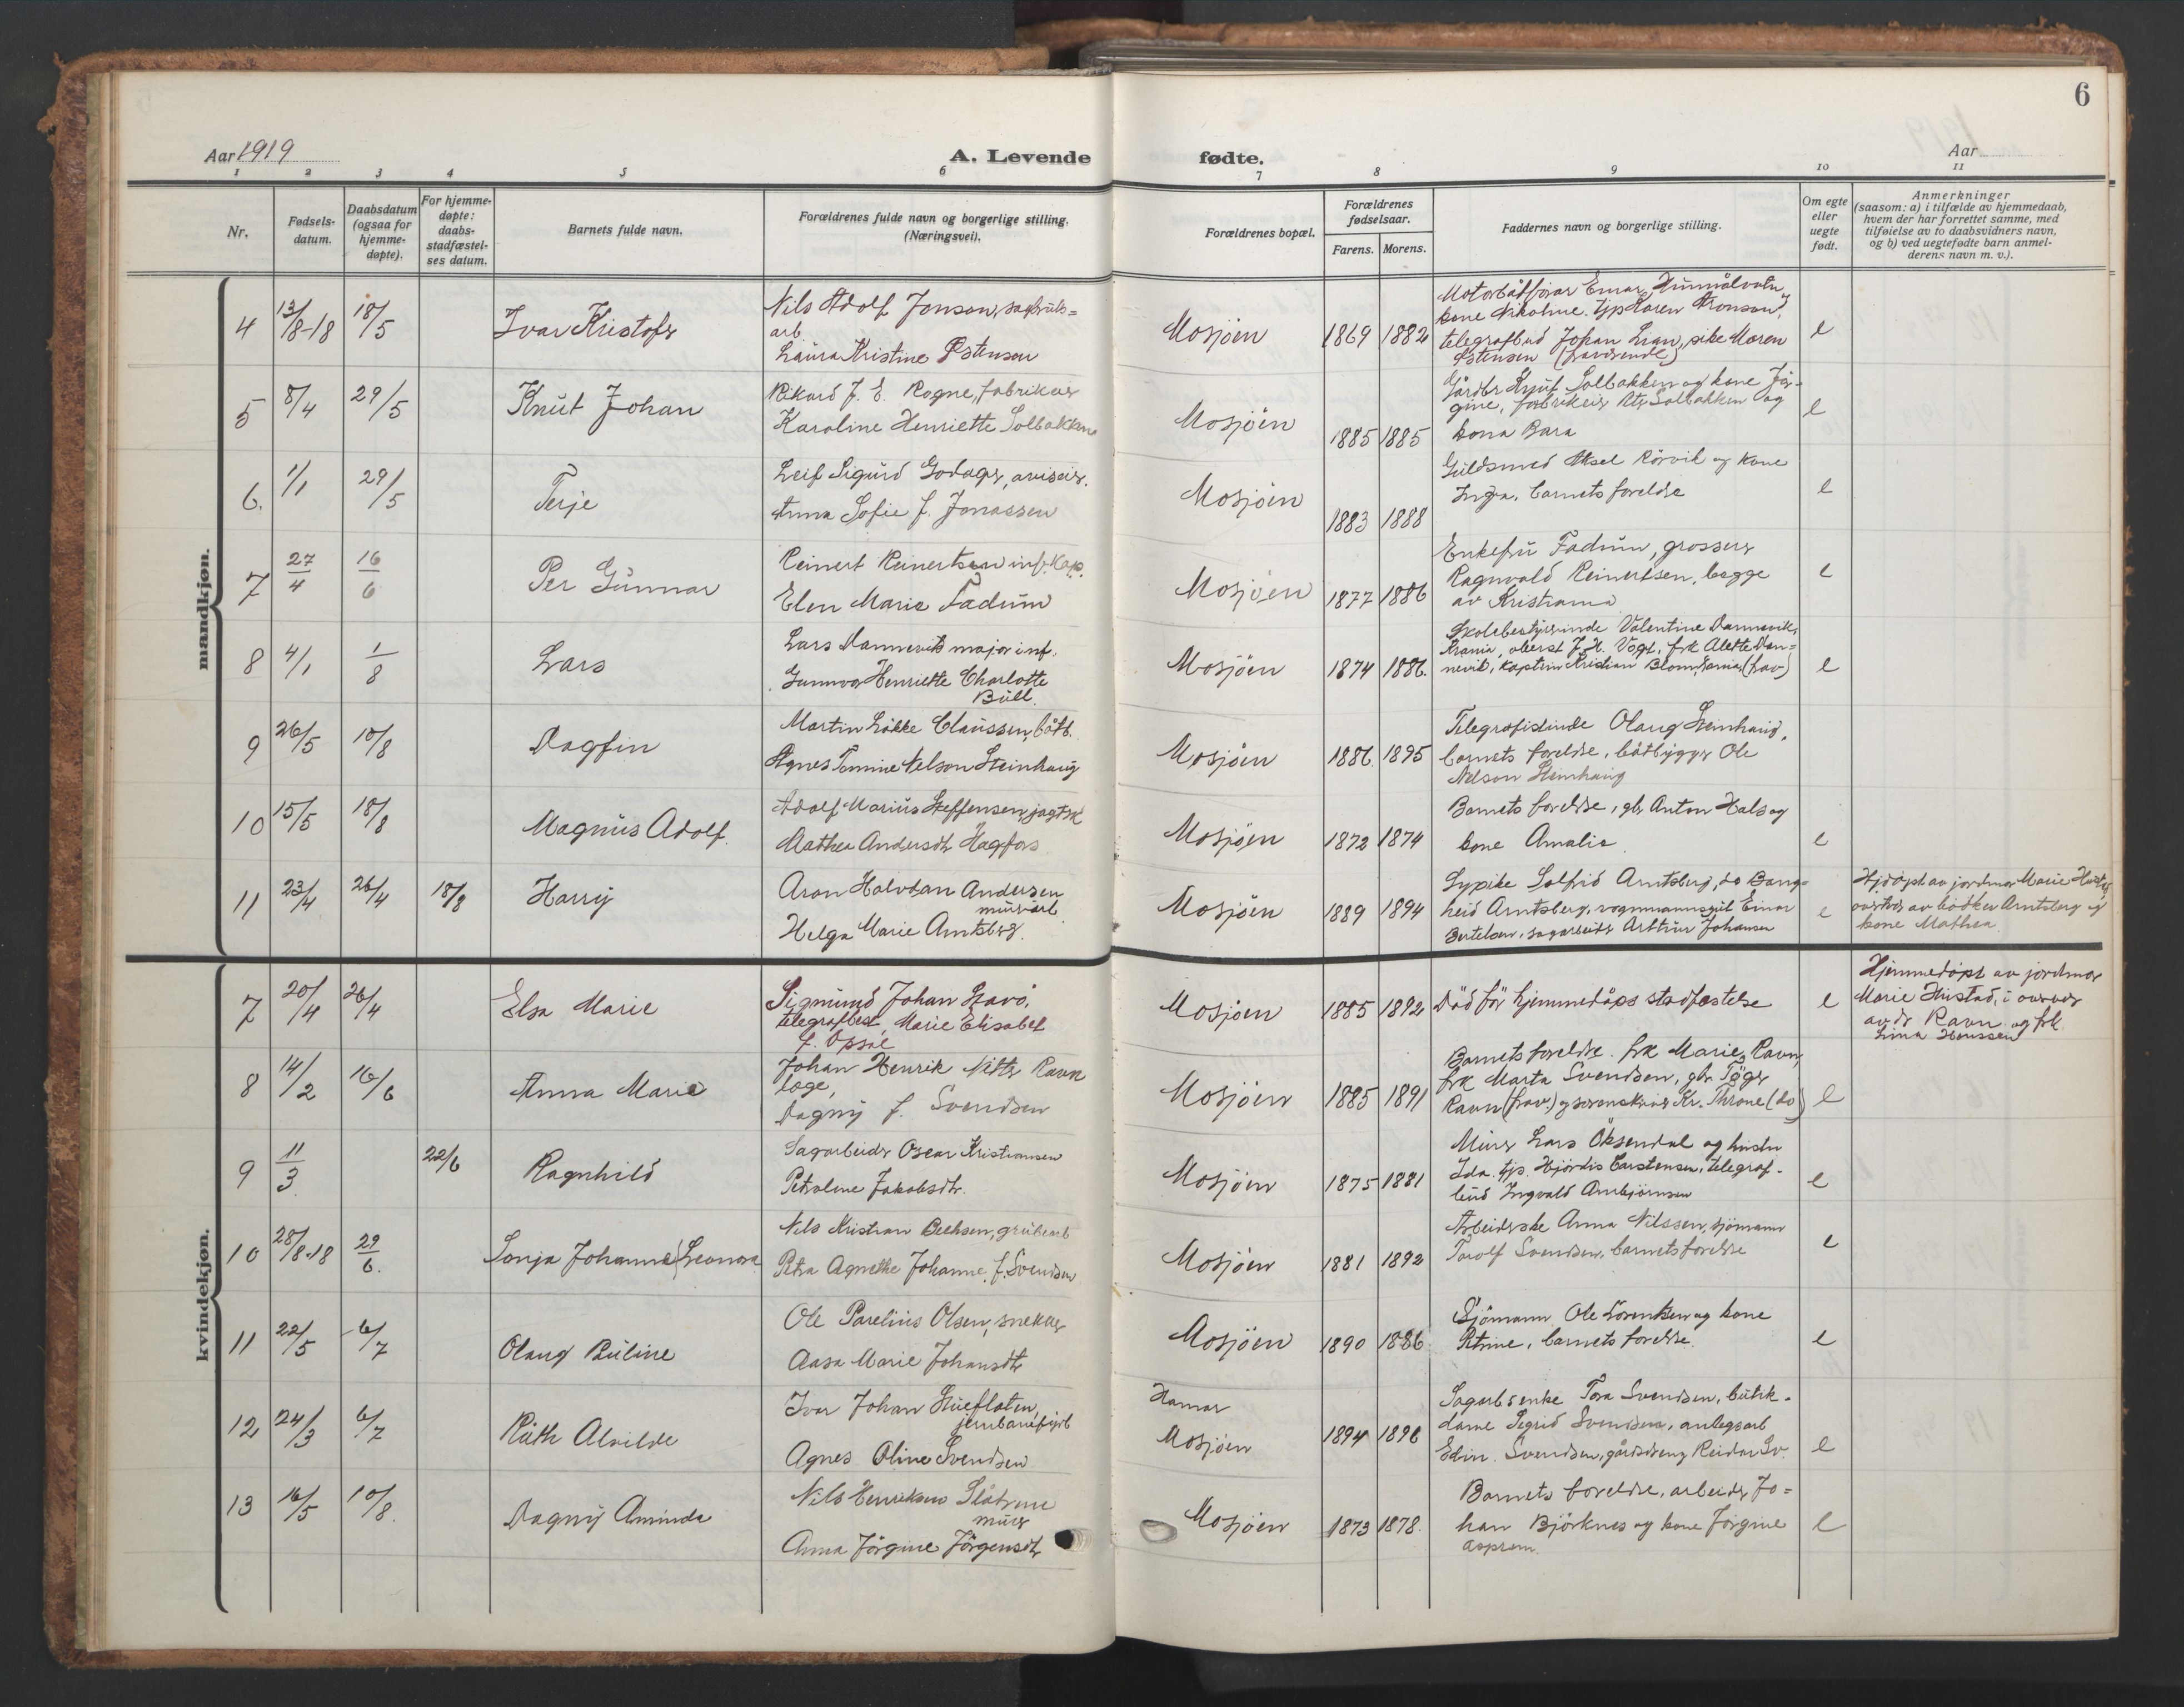 6
Aar 1919
A. Levende
fødte.
Aar
1 2 3 4 5 6 7 8 9 10 11
Nr.
Fødsels-
datum.
Daabsdatum
(ogsaa for
hjemme-
døpte).
For hjemme-
døpte:
daabs-
stadfæstel-
ses datum.
Barnets fulde navn.
Forældrenes fulde navn og borgerlige stilling.
(Næringsvei).
Forældrenes bopæl.
Forældrenes
fødselsaar.
Farens. Morens.
Faddernes navn og borgerlige stilling.
Om egte
eller
uegte
født.
Anmerkninger
(saasom: a) i tilfælde av hjemmedaab,
hvem der har forrettet samme, med
tilføielse av to daabsvidners navn,
og b) ved uegtefødte barn anmel-
derens navn m. v.).
mandkjøn.
4 13/8-18 18/5 Ivar Kristofer
Nils Adolf Jonson
arb
Laura Kristine Østensen
Mosjöen 1869 1882
telegrafbud Johan pike Maren
Østensen
e
5 8/4 29/5 Knut Johan
Rikard J. E. Rogne, fabrikeier
Karoline Henriette Solbakken
Mosjöen 1885 1885
Gårdbr Knut Solbakken og kone Jör-
gine, fabrikeier Solbakken og
kona Bara
e
6. 1/1 29/5 Terje
Leif Sigurd Godager, aviseier.
Anna Sofie f. Jonassen
Mosjöen 1883 1888
Guldsmed Aksel Rörvik og kone
Inga, barnets foreldre
e
7 27/4 16/6 Per Gunnar
Reinert Reinertsen inf. kap.
Elen Marie Fadum
Mosjöen 1877 1886
Enkefru Fadum, grosserer
Ragnvald Reinertsen, begge
av Kristiania
e
8 4/1 1/8 Lars
Lars Dannevik major inf.
Gunnvor Henriette Charlotte
Bull.
Mosjöen 1874 1886.
Skolebestyrerinde Valentine Dannevik,
Krania, oberst J. H. Vogt, frk Alette Dan-
nevik, kaptein Kristian Blom, (frav)
e
9 26/5 10/8 Dagfin
Martin Lökke Claussen, båtb.
Agnes Tomine Nelson Steinhaug
Mosjöen 1886. 1895
Telegrafistinde Olaug Steinhaug,
barnets foreldre, båtbygger Ole
Nelson Steinhaug
10 15/5 18/8 Magnus Adolf.
Adolf Marius Steffensen jagtsk
Mathea Andersdtr Hagfors
Mosjöen 1872 1874
Barnets foreldre, gbr Anton Hals og
kone Amalie.
e
11 23/4 26/4 18/8 Harry
Aron Halvdan Andersen
murarb.
Helga Marie Arntsberg.
Mosjöen 1889 1894
Sypike Solfrid Arntsberg, do Borg-
heid Arntsberg, vognmannsgut Einar
Bertelsen, sagarbeider Arthur Johansen
e
Hjdöpt av jordmor Marie
overvær av bödker Arntsberg og
kone Mathea
kvindekjøn.
7 20/4 26/4 Elsa Marie
Sigmund Johan Stavö,
telegrafbest, Marie Elisabet
f. Opsal
Mosjöen 1885 1892
Död för hjemmedåps stadfæstelse
e
Hjemmedöpt av jordmor
Marie Hustad, i overvær
av dr Ravn og frk.
8 14/2 16/6 Anna Marie
Johan Henrik Ravn
læge,
Dagny f. Svendsen
Mosjöen 1885 1891
Barnets foreldre. frk Marie Ravn,
frk Marta Svendsen, gbr
Ravn (frav.) og sorenskriver Kr. Throne (do)
e
9 11/3 22/6 Ragnhild
Sagarbeider Oscar Kristiansen
Petroline Jakobsdtr.
Mosjöen 1875 1881
Murer Lars Öksendal og hustru
Ida. tjp. Hjördis Carstensen, telegraf-
bud Ingvald Arnbjörnsen
e
10 28/8-18 29/6. Sonja Johanne Leonora
Nils Kristian Bechsen, grubearb
Petra Agnethe Johanne f. Svendsen
Mosjöen 1881 1892
Arbeiderske Anna Nilssen, sjömann
Torolf Svendsen, barnets foreldre
e
11 22/5 6/7 Olaug Puline
Ole Parelius Olsen, snekker
Aasa Marie Johansdtr
Mosjöen 1890 1886.
Sjömann Ole Lorentsen og kone
Petrine, barnets foreldre.
e
12 24/3 6/7 Ruth Alvilde
Ivar Johan
Agnes Oline Svendsen
Hamar
Mosjöen 1894 1896
Sagarbs enke Tora Svendsen, butik-
dame Sigrid Svendsen, anlegsarb
Edin Svendsen, gårdsdreng Reidar Sv.
e
13 16/5 10/8. Dagny Aminda
Nils Henriksen
murer
Anna Jörgine Jörgensdtr
Mosjöen 1873 1878.
Barnets foreldre, arbeider Jo-
han Björknes og kone Jörgine
e